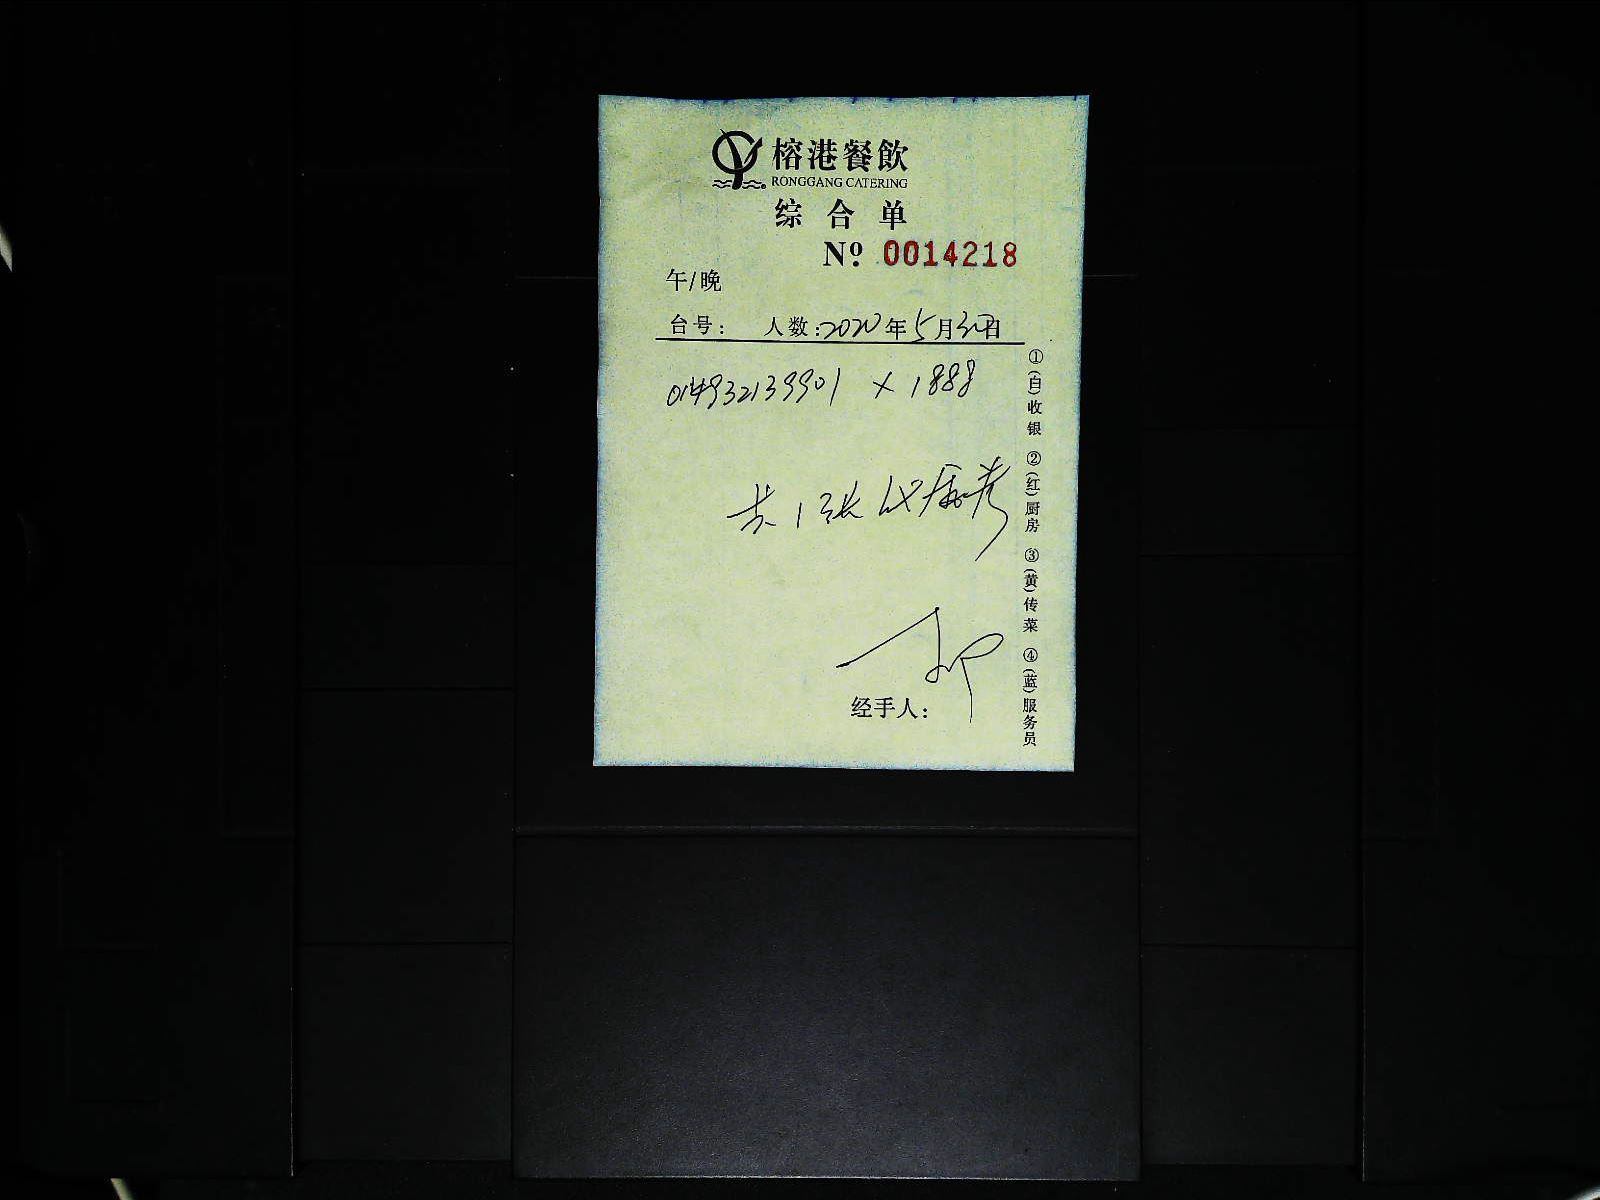 榕港餐飲
RONGGANG CATERING
综合单
Nº 0014218
午/晚
台号： 人数：2020年5月30日
014932139901 × 1888
共1张
经手人：
①(白)收银 ②(红)厨房 ③(黄)传菜 ④(蓝)服务员